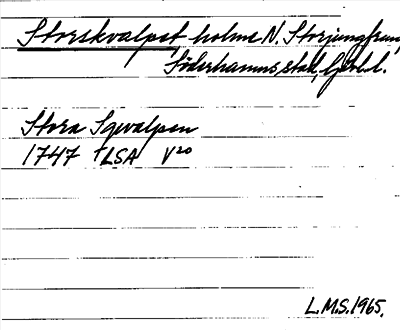 Storskvalpet, holme N. Storjungfrun,
Söderhamns stad, Gävl. l.
Stora Sqvalpen
1747 LSA V20
L.M.S. 1965.